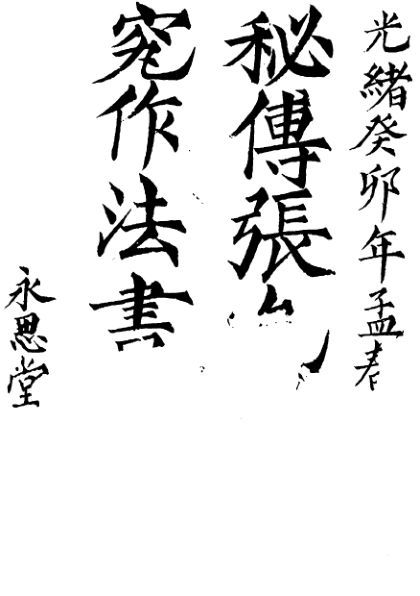 光緒癸卯年孟春
秘傳張
究作法書
永思堂